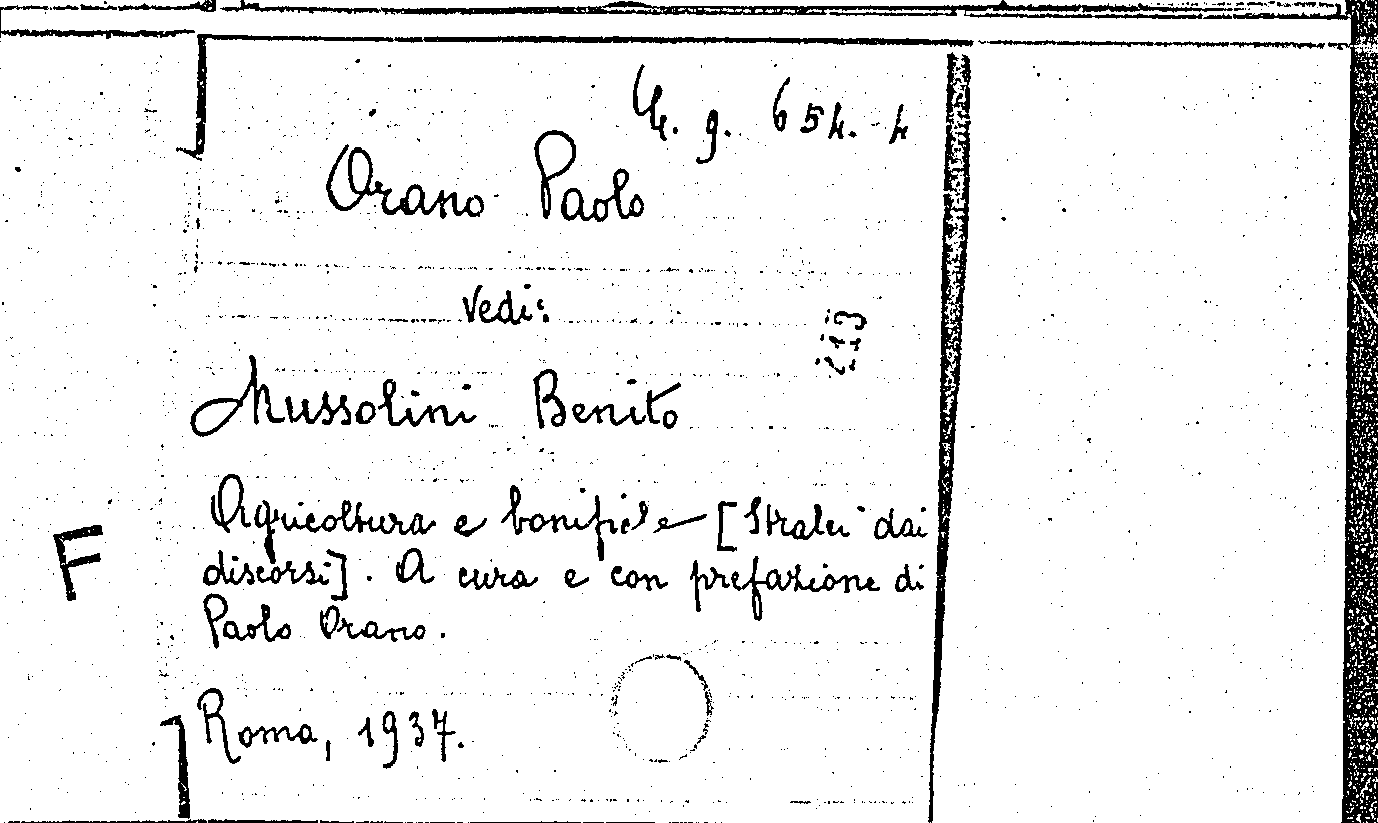 4. g. 654. 4
Orano Paolo
Vedi:
Mussolini Benito
Agricoltura e bonifiche [Stralci dai
discorsi]. A cura e con prefazione di
Paolo Orano.
F
Roma, 1937.